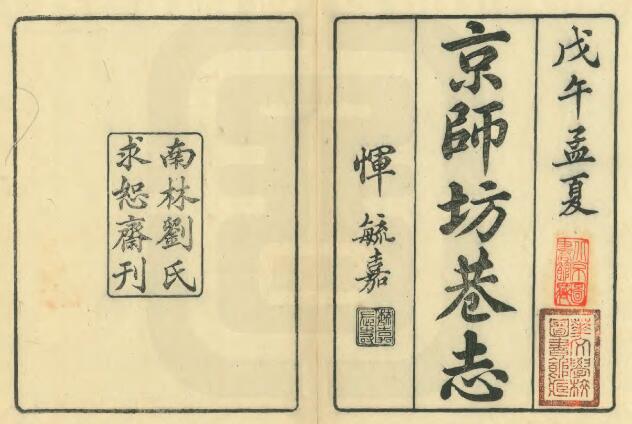 戊午孟夏
京師坊巷志
惲毓嘉
南林劉氏
求恕齋刊